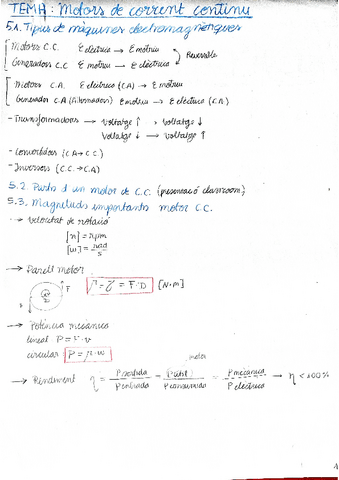 TEMA : Motors de corrent continu
5.1. Tipus de màquines electromagnètiques
Motors C.C. E elèctrica → E motriu
Generadors C.C E motriu → E elèctrica
Reversible
Motors C.A. E elèctrica (C.A) → E motriu
Generador C.A (Alternadors) E motriu → E elèctrica (C.A)
- Transformadors → Voltatge ↑ → Voltatge ↓
Voltatge ↓ → Voltatge ↑
- Convertidors (C.A → C.C.)
- Inversors (C.C. → C.A)
5.2. Parts d'un motor de C.C. (presentació classroom)
5.3. Magnituds importants motor C.C.
→ Velocitat de rotació
[n] = rpm
[w] = rad/s
→ Parell motor
F
D
Γ = τ = F · D [N·m]
→ Potència mecànica
lineal P = F · v
circular P = Γ · w
motor
→ Rendiment η = P sortida / P entrada = P útil / P consumida = P mecànica / P elèctrica → η < 100%